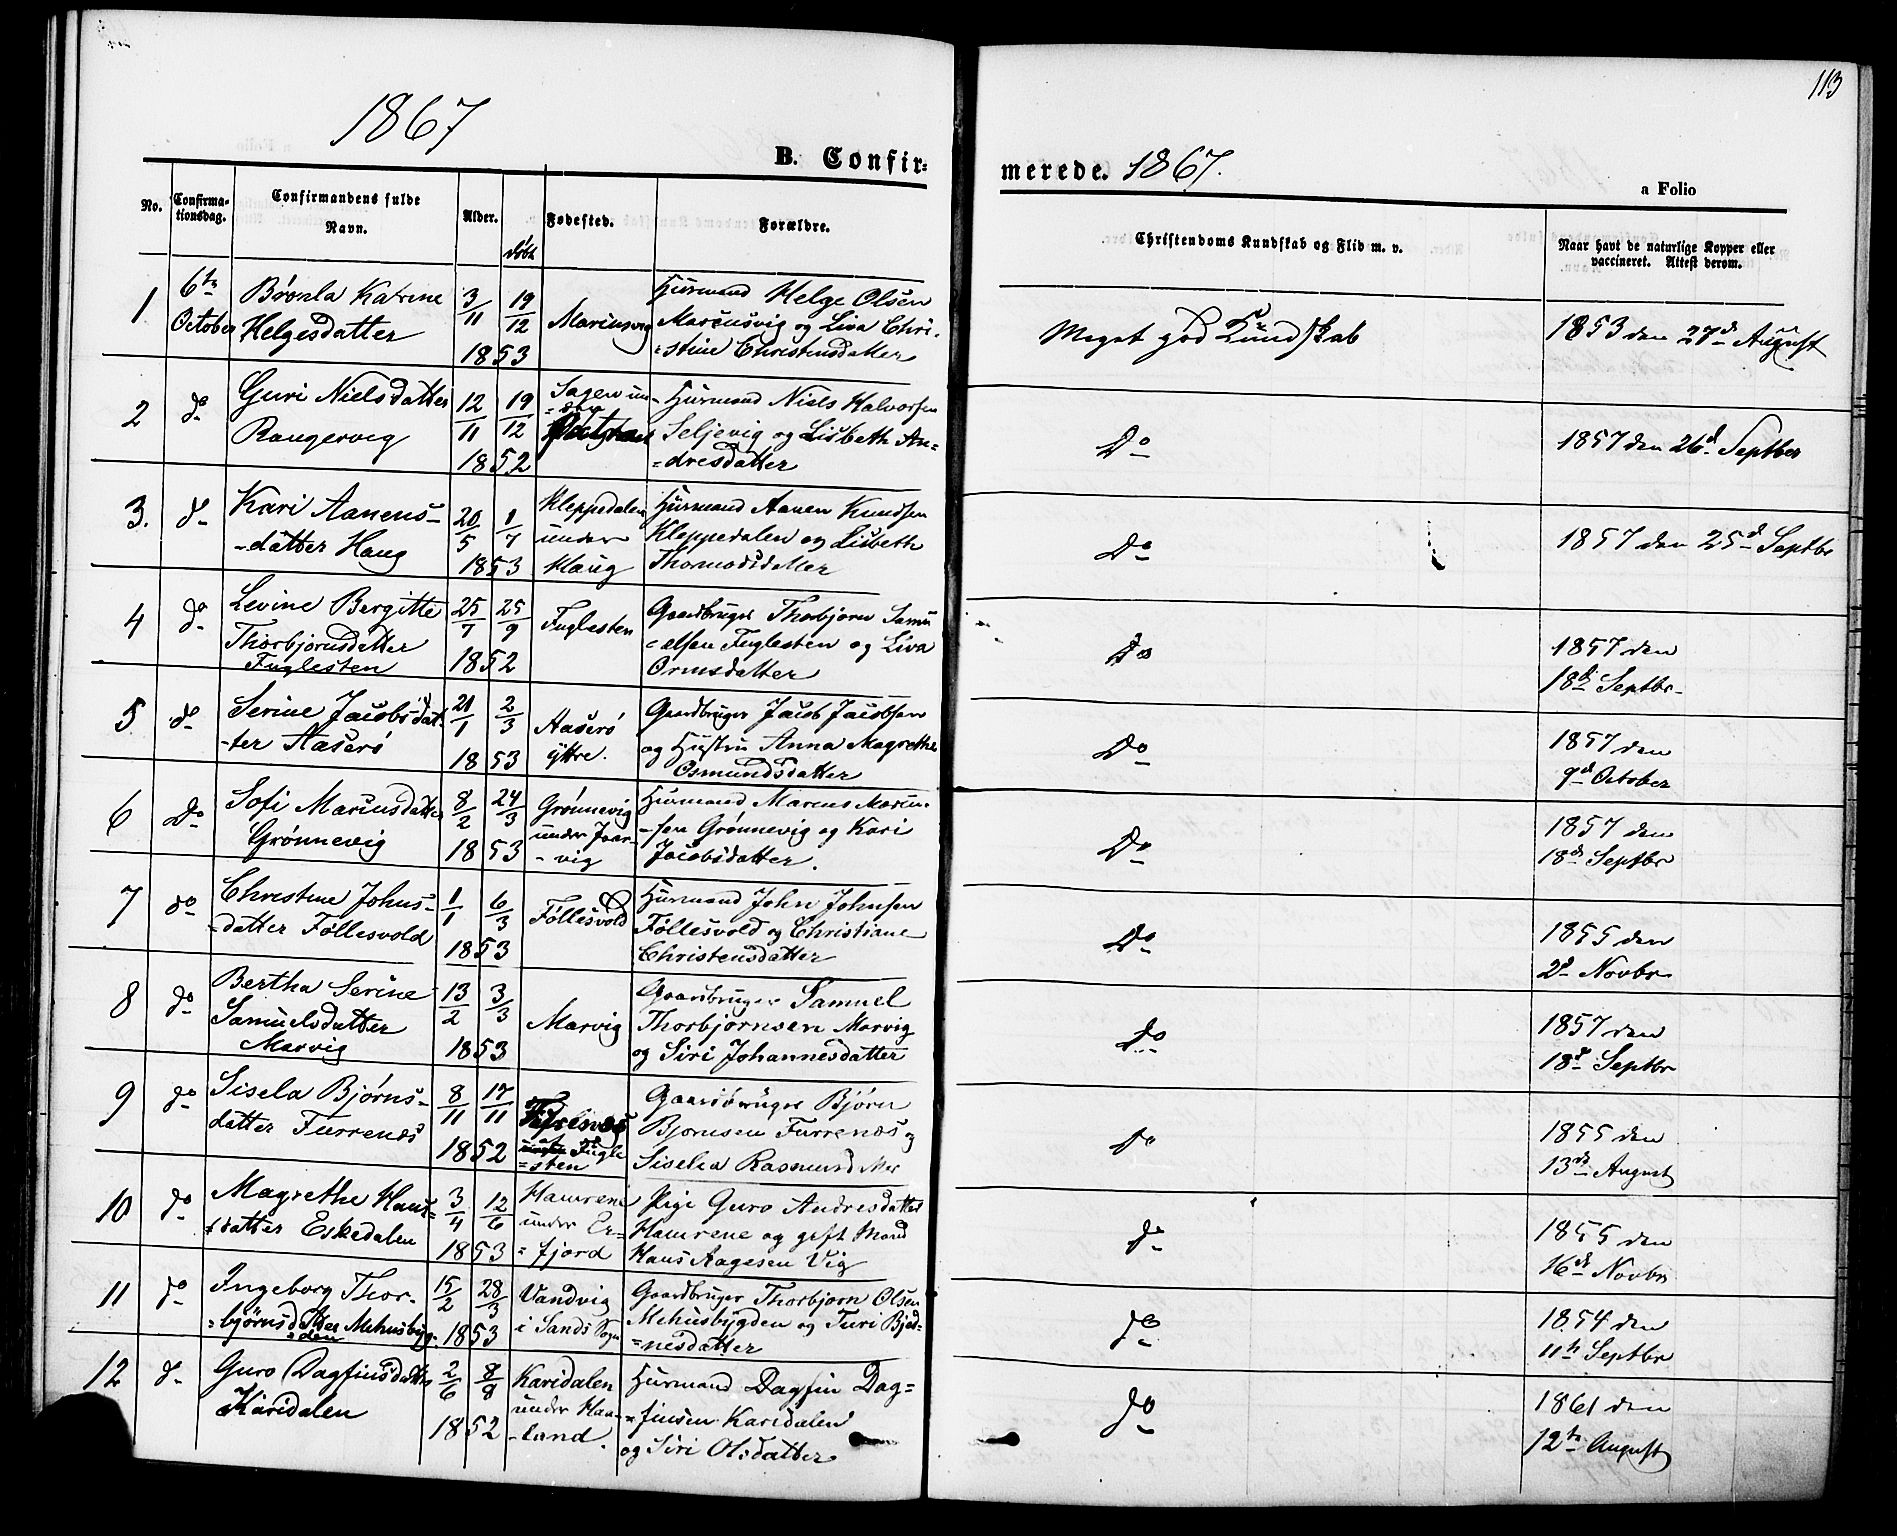 113
1867
B. Confir=
merede. 1867.
a Folio
No.
Confirma-
tionsdag.
Confirmandens fulde
Navn.
Alder.
döbt
Fødested.
Forældre.
Christendoms Kundskab og Flid m. v.
Naar havt de naturlige Kopper eller
vaccineret. Attest derom.
1
6te
October
Helgesdatter
3/11 19/12
1853
Huusmand Helge Olsen
Marcusvig og Liva Chri-
=stine Christensdatter
Meget god Kundskab
1853 den 27d August
2
do
Guri Nielsdatter
12/11 19/12
1852
Huusmand Niels Halvorsen
Seljevig og Lisbeth An=
=dresdatter
Do
1857 den 26d Septber
3.
do
Kari Aanens-
-datter Haug
20/5 1/7
1853
Kleppedalen
under
Haug
Huusmand Aanen Knudsen
Kleppedalen og Lisbeth
Thormodsdatter
Do
1857 den 25d Septbr
4
do
Levine Bergitte
Thorbjörnsdatter
Fuglesten
25/7 25/9
1852
Fuglesten
Gaardbruger Thorbjörn Samu
=elsen Fuglesten og Liva
Ormsdatter
Do
1857 den
18de Septbr-
5
do
Serine Jacobsdat-
-ter Aaserö
21/1 2/3
1853
Aaserö
ÿttre.
Gaardbruger Jacob Jacobsen
og Hustru Anna Magrethe
Osmundsdatter
Do
1857 den
9d October
6
Do
Sofi Mariusdatter
Grönnevig
8/2 24/3
1853
Grönnevig
under Jaar-
-vig
-sen Grönnevig og Kari
Jacobsdatter.
Do
1857 den
18de Septbr
7
do
Christine Johns-
=datter Föllesvold
1/1 6/3
1853
Föllesvold
Huusmand John Johnsen
Föllesvold og Christiane
Christensdatter
Do
1855 den
2d Novbr
8
do
Bertha Serine
Samuelsdatter
Marvig
13/2 3/3
1853
Marvig
Gaardbruger Samuel
Thorbjörnsen Marvig
og Siri Johannesdatter
do
1857 den
18d Septbr
9
do
Sisela Bjørns-
datter Furrenæs
8/11 17/11
1852
Fugle
=sten
Gaardbruger Björn
Bjørnsen Furrenæs og
do
1855 den
13de August
10
do
Magrethe Hans=
datter Eskedalen
3/4 12/6
1853
Hamrene
under Er=
=fjord
Pige Guro Andresdatter
Hamrene og gift Mand
Hans Aagesen Vig
do
1855 den
16de Novbr
11
do
Ingeborg Thor-
=björnsdatter Mehusbyg-
=den
15/2 28/3
1853
Vandvig
i Sands Sogn
Gaardbruger Thorbjörn Olsen
Mehusbygden og Turi Bjed=
=nesdatter
do
1854 den
11te Septbr
12
do
Guro Dagfinsdatter
Karidalen
2/6 8/8
1852
Karidalen
under Haa-
-land.
Huusmand Dagfin Dag=
=finsen Karidalen
og Siri Olsdatter
do
1861 den
12te August